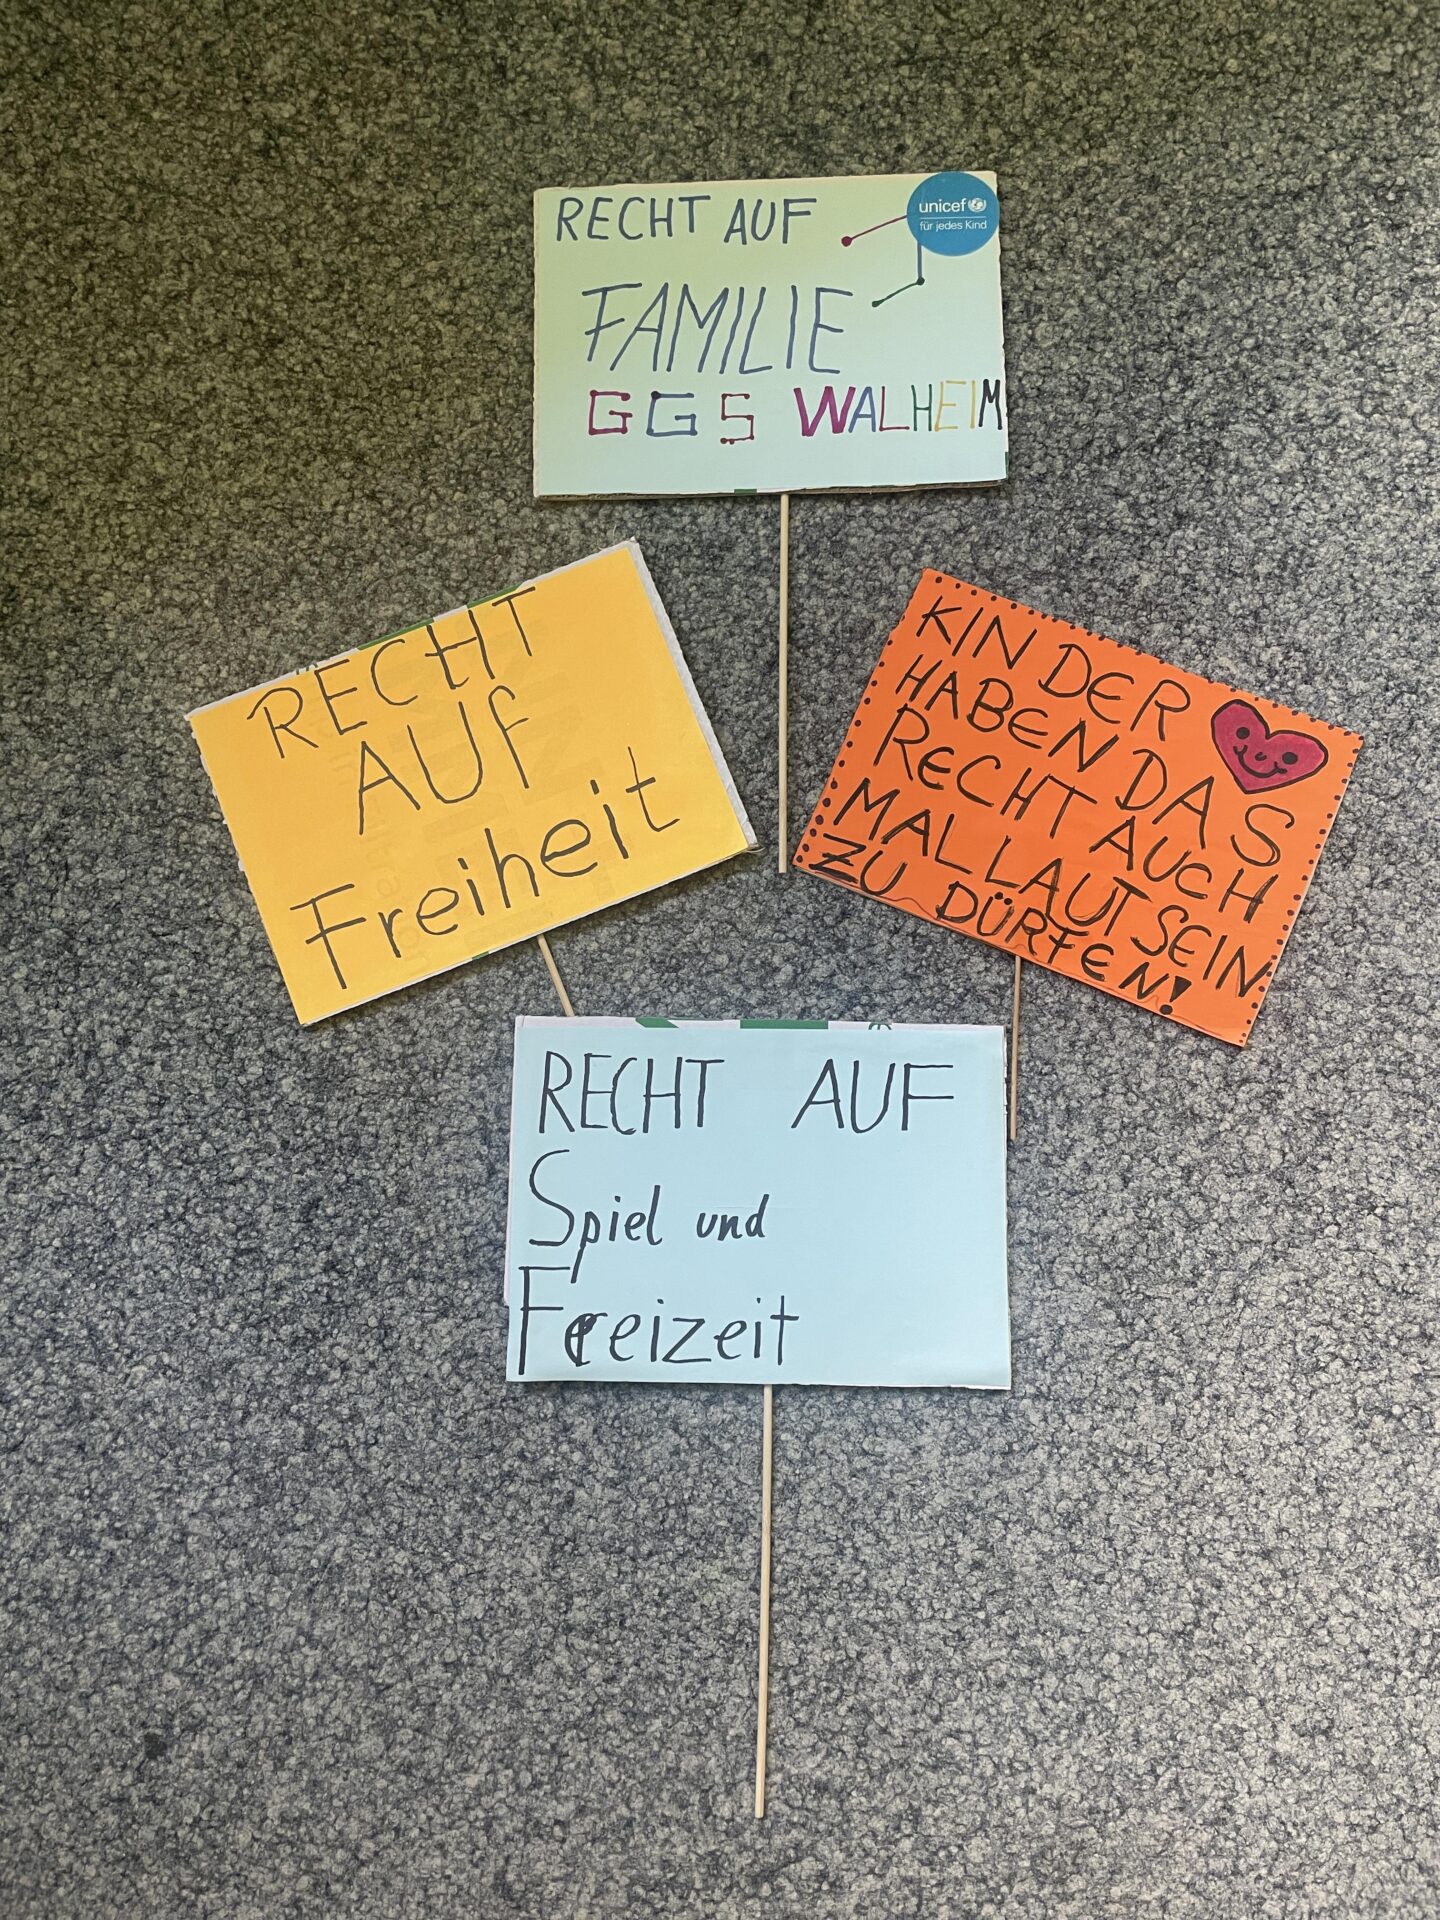 RECHT AUF
unicef
für jedes Kind
FAMILIE
GGS WALHEIM
RECHT
AUF
Freiheit
KINDER
HABEN DAS
RECHT AUCH
MAL LAUT SEIN
ZU DÜRFEN!
RECHT AUF
Spiel und
Freizeit